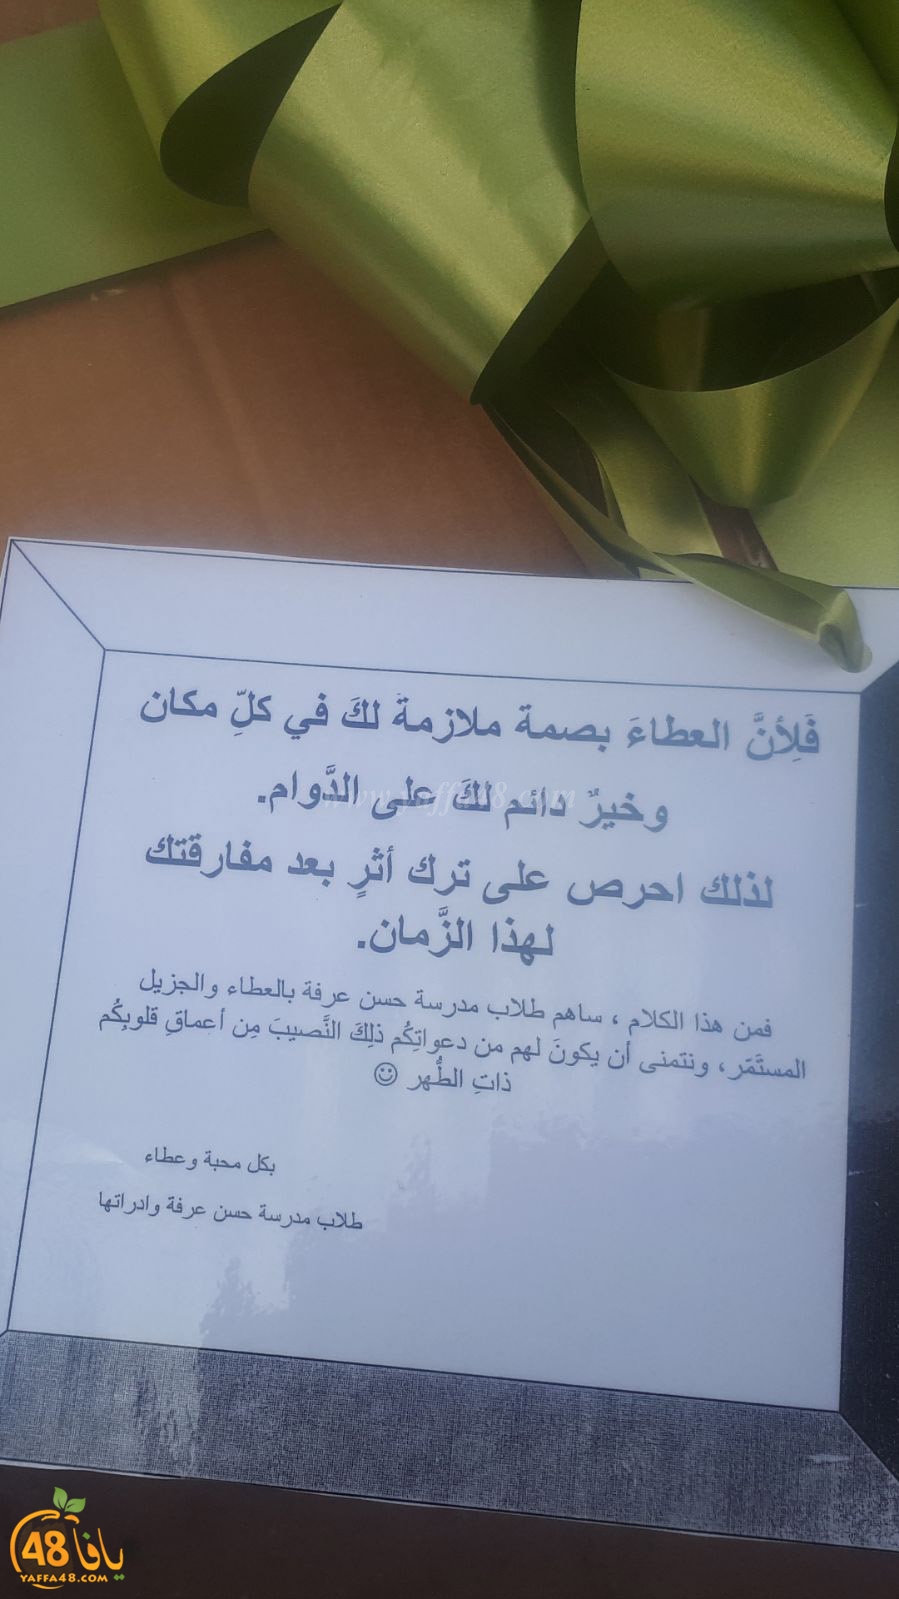 فَلِأنَّ العطاءَ بصمة ملازمةَ لكَ في كلِّ مكان
وخيرٌ دائم لكَ على الدَّوام.
www.yaffa48.com
لذلك احرص على ترك أثرٍ بعد مفارقتك
لهذا الزَّمان.
فمن هذا الكلام ، ساهم طلاب مدرسة حسن عرفة بالعطاء والجزيل
المستَمَر ، ونتمنى أن يكونَ لهم من دعواتِكُم ذلِكَ النَّصيبَ مِن أعماقِ قلوبِكُم
ذاتِ الطُّهر ☺
بكل محبة وعطاء
طلاب مدرسة حسن عرفة وادراتها
يافا 48
YAFFA48.COM